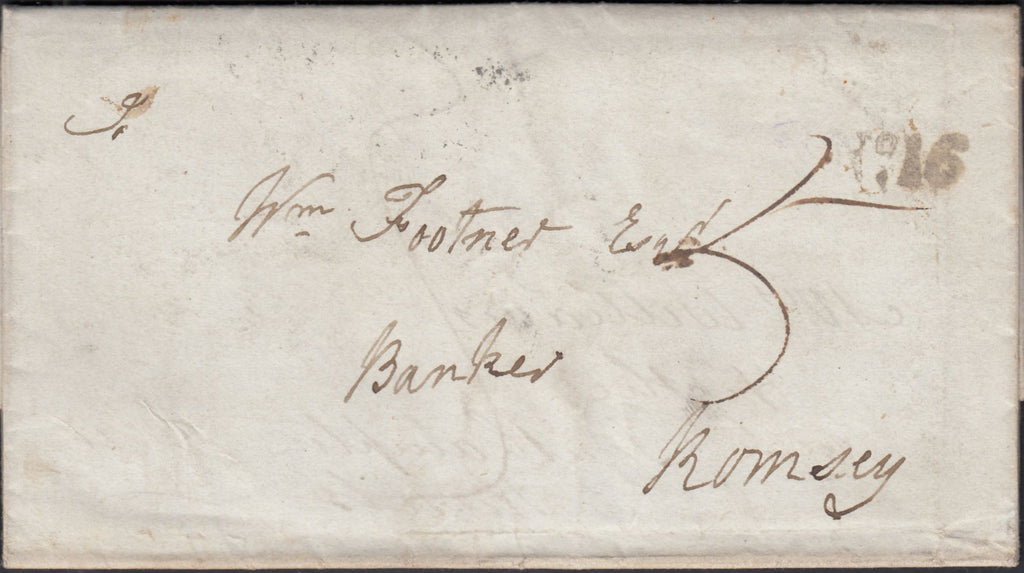 No 16
Wm Footner Esqr
5
Banker
Romsey